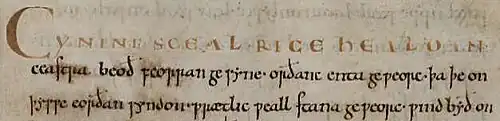 CYNING SCEAL RICE HEALDAN
ceastra beoð feorran gesyne · orðanc enta geƿeorc · þa þe on
þysse eorðan syndon · ƿrætlic ƿeall stana geƿeorc · ƿind byð on